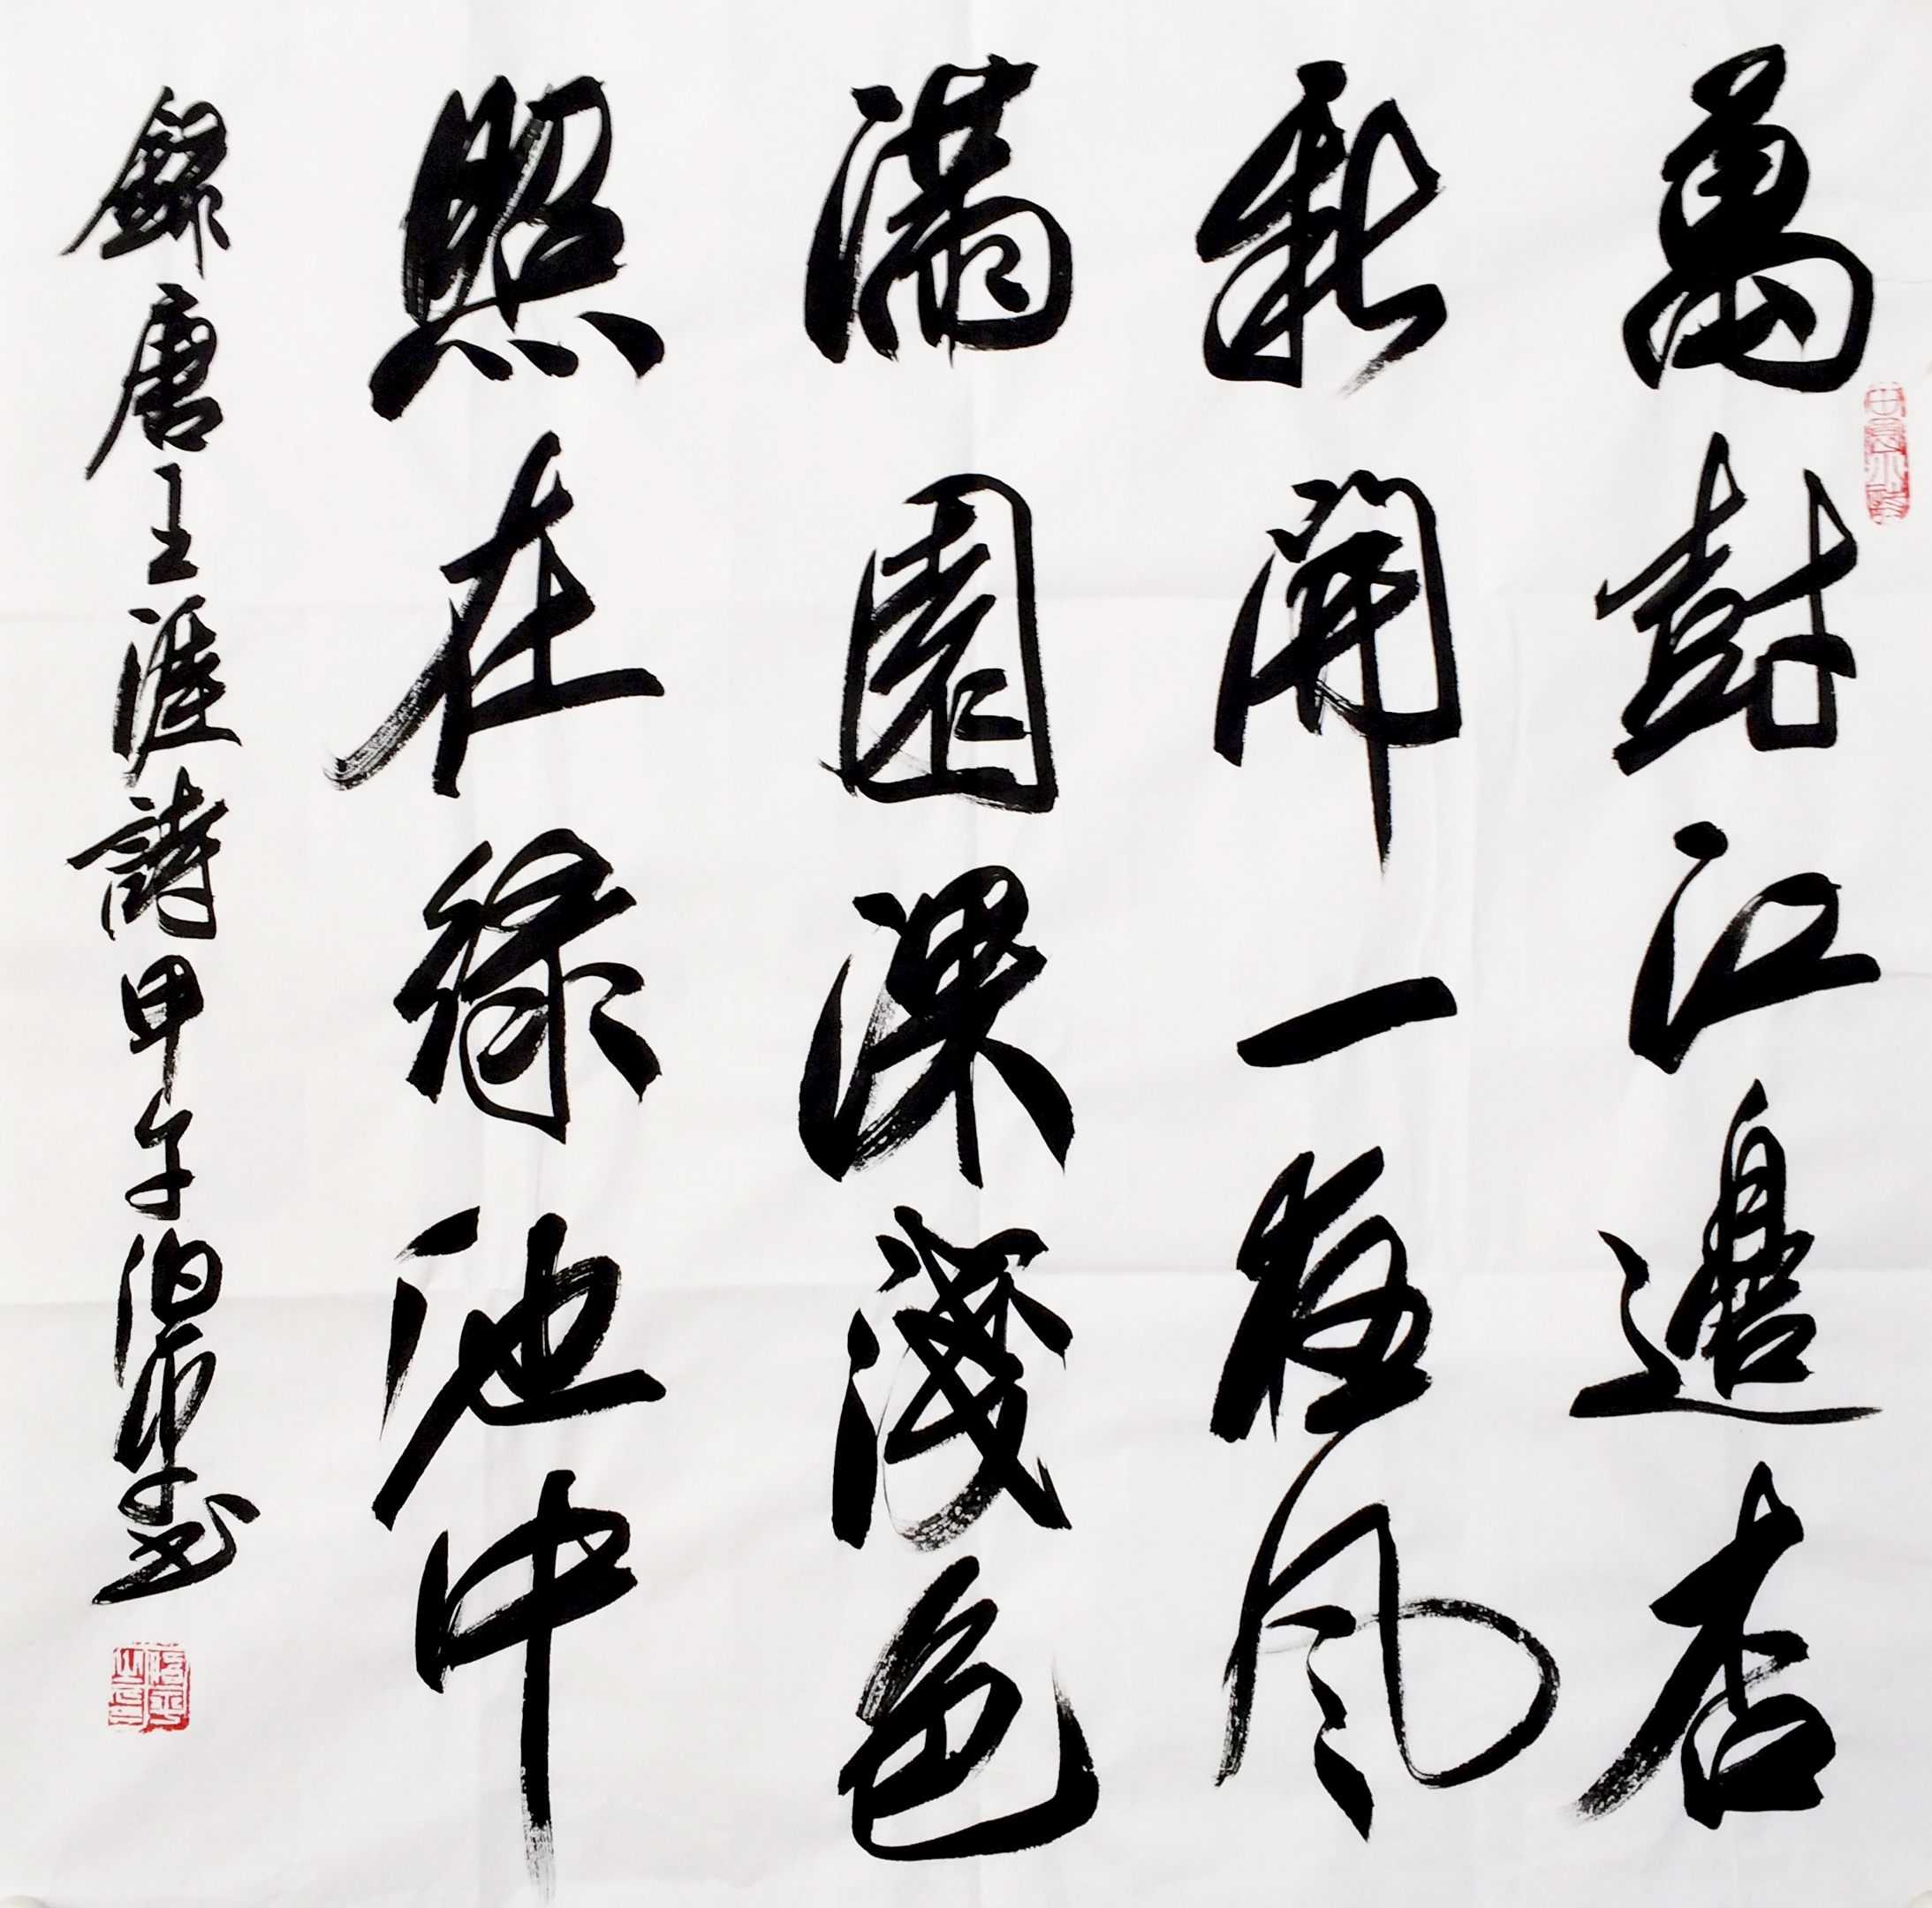 萬樹江邊杏
新開一夜风
滿園深淺色
照在綠池中
錄唐王涯詩甲午書